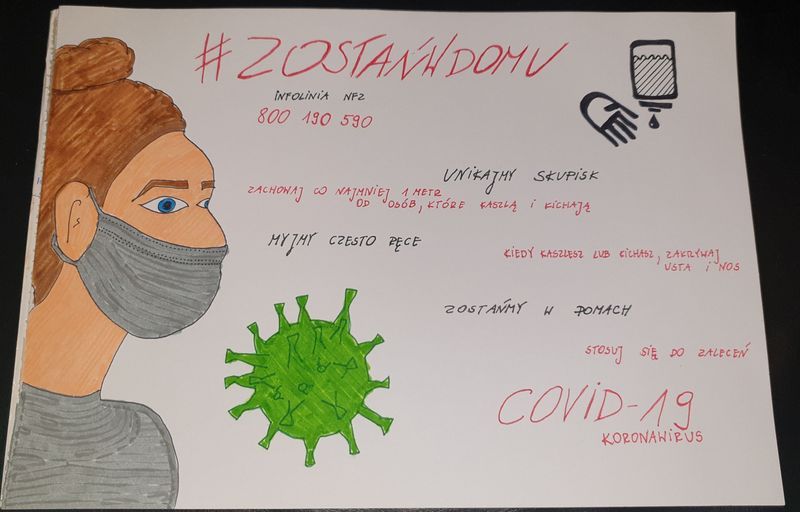 #ZOSTAŃWDOMU
INFOLINIA NFZ
800 190 590
UNIKAJMY SKUPISK
ZACHOWAJ CO NAJMNIEJ 1 METR
OD OSÓB, KTÓRE KASZLĄ I KICHAJĄ
MYJMY CZESTO RĘCE
KIEDY KASZLESZ LUB KICHASZ, ZAKRYWAJ
USTA I NOS
ZOSTAŃMY W DOMACH
STOSUJ SIĘ DO ZALECEŃ
COVID-19
KORONAWIRUS